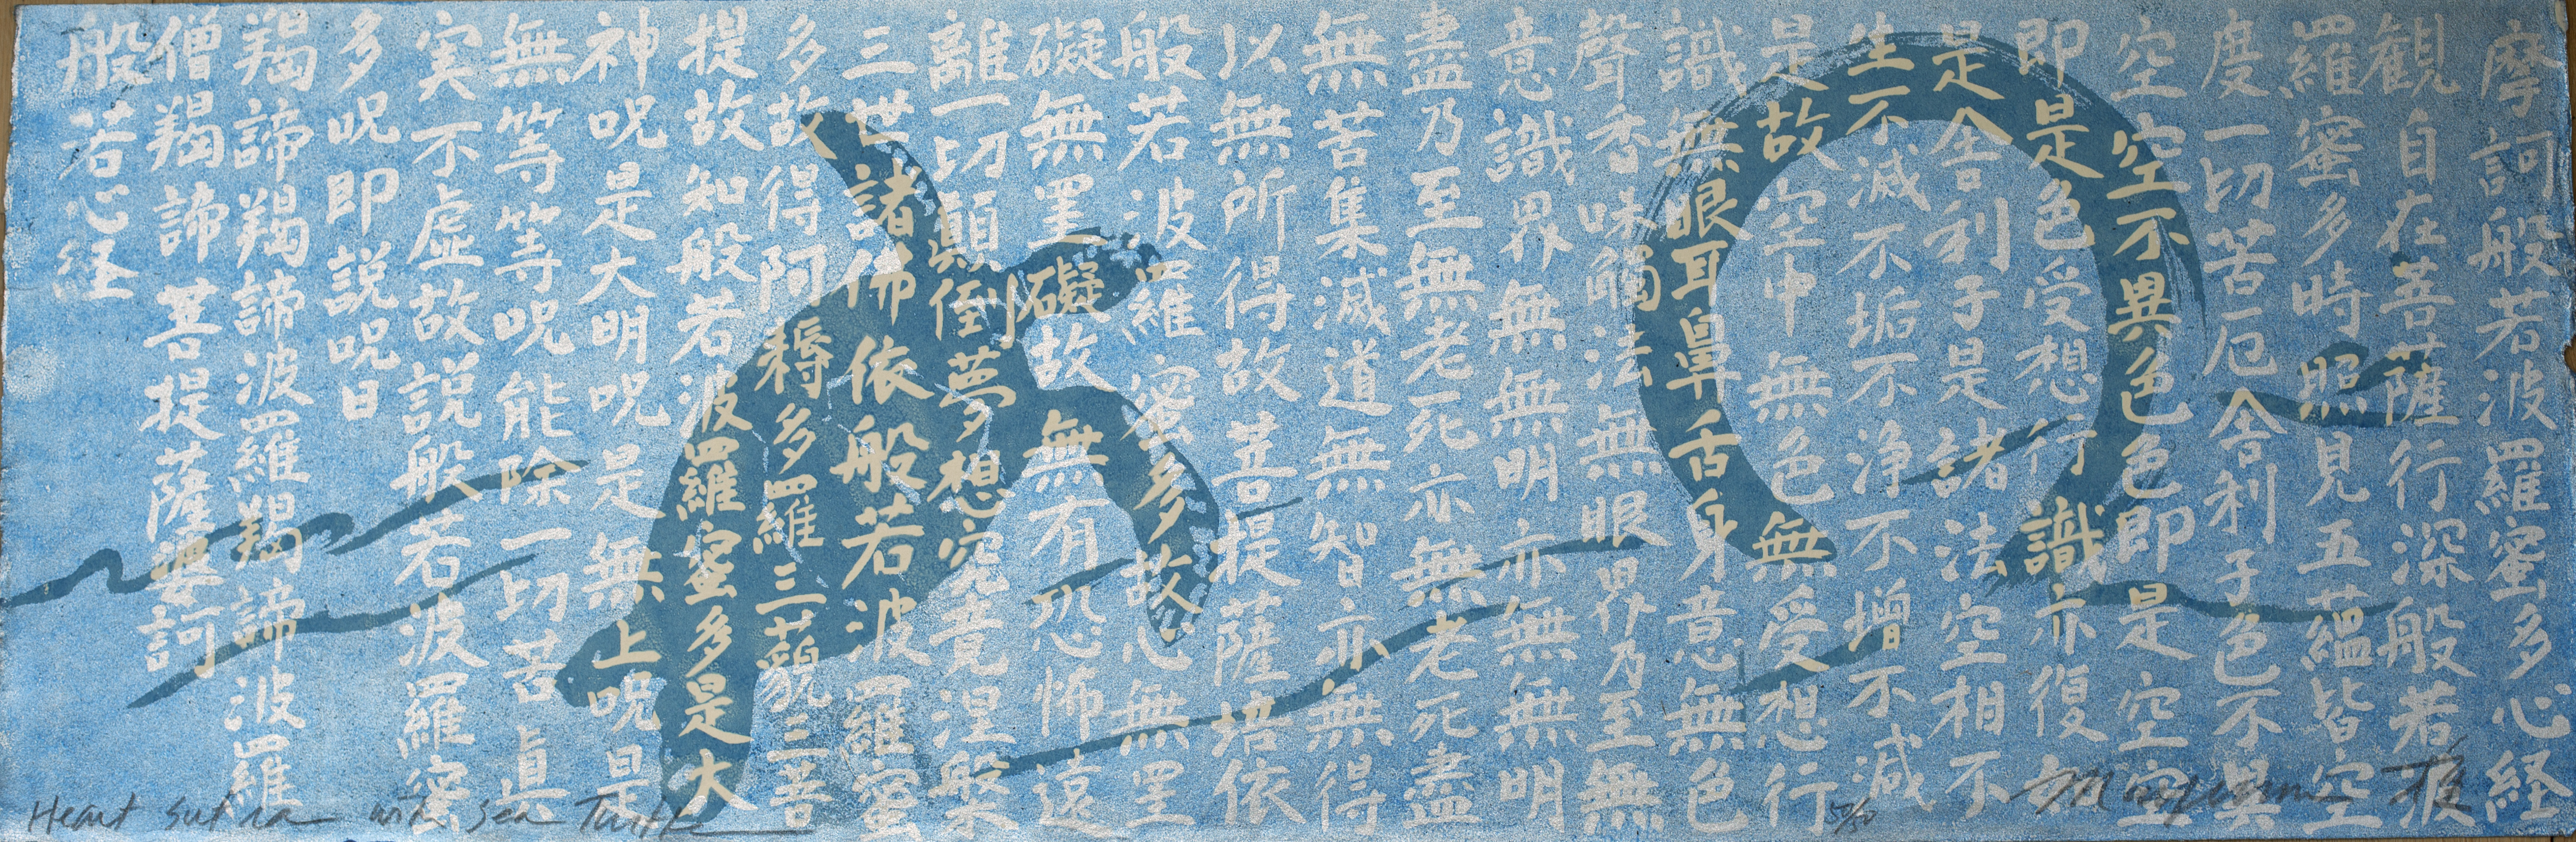 摩訶般若波羅蜜多心経
観自在菩薩行深般若
羅蜜多時照見五蘊皆空
度一切苦厄舎利子色不異
空空不異色色即是空空
即是色受想行識亦復如
是舎利子是諸法空相不
生不滅不垢不浄不増不減
是故空中無色無受想行
識無眼耳鼻舌身意無色
聲香味觸法無眼界乃至無
意識界無無明亦無無明
盡乃至無老死亦無老死盡
無苦集滅道無智亦無得
以無所得故菩提薩埵依
般若波羅蜜多故心無罣
礙無罣礙故無有恐怖遠
離一切顛倒夢想究竟涅槃
三世諸佛依般若波羅蜜
多故得阿耨多羅三藐三菩
提故知般若波羅蜜多是大
神呪是大明呪是無上呪是
無等等呪能除一切苦眞
実不虚故説般若波羅蜜
多呪即説呪曰
羯諦羯諦波羅羯諦波羅
僧羯諦菩提薩婆訶
般若心経
Heart sutra with sea Turtle
50/50